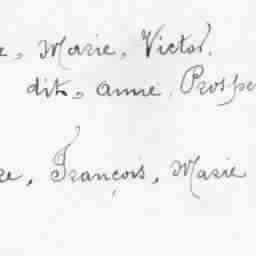 e, Marie, Victor.
dit, anne, Prospe
re, François, Marie